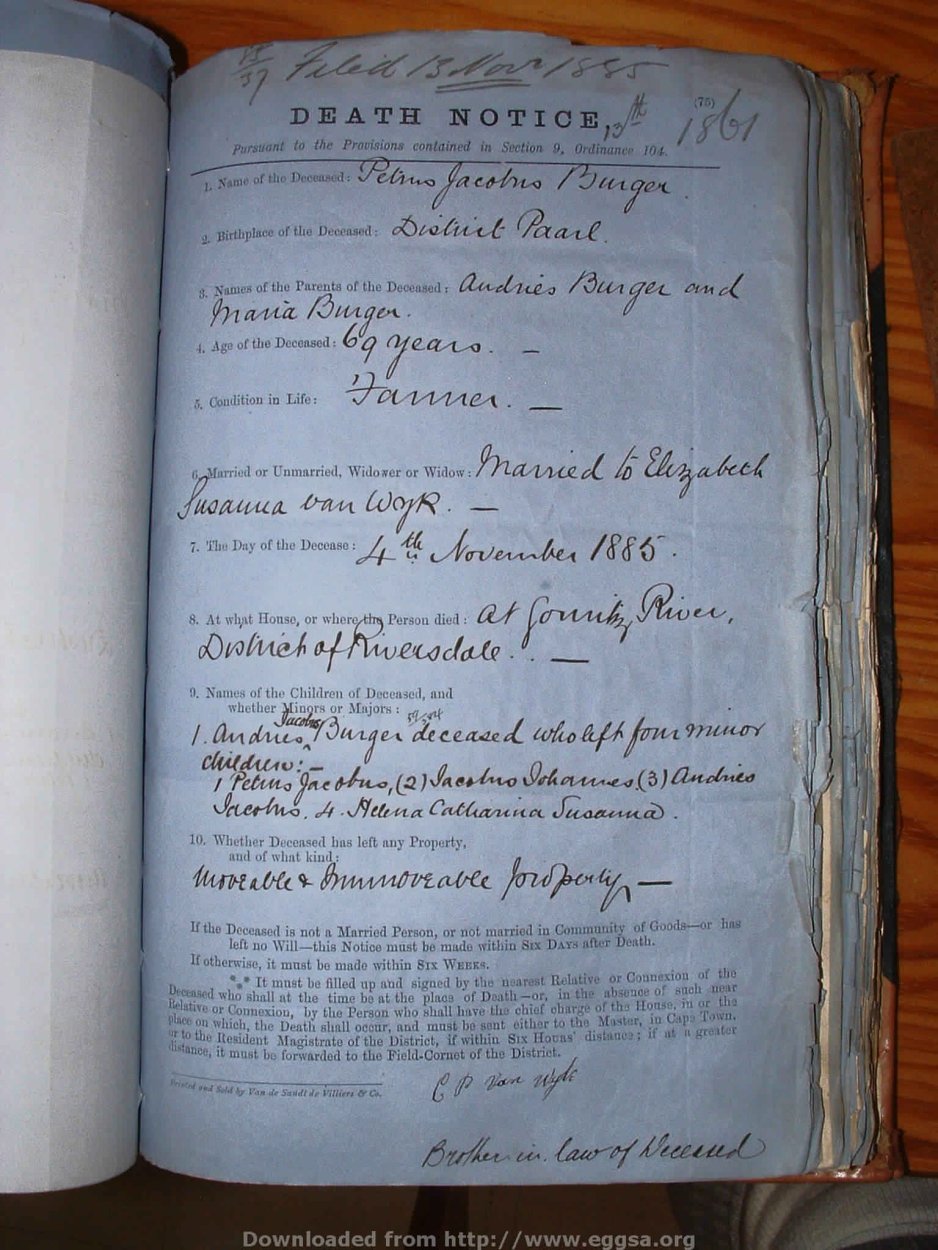 15/37 Filed 13 Novr 1885
(75)
DEATH NOTICE, 13th 1861
Pursuant to the Provisions contained in Section 9, Ordinance 104.
1. Name of the Deceased: Petrus Jacobus Burger
2. Birthplace of the Deceased: District Paarl.
3. Names of the Parents of the Deceased: Andries Burger and
Maria Burger.
4. Age of the Deceased: 69 years. —
5. Condition in Life: Farmer. —
6. Married or Unmarried, Widower or Widow: Married to Elizabeth
Susanna van Wyk. —
7. The Day of the Decease: 4th November 1885.
8. At what House, or where the Person died: At Gouritz River,
District of Riversdale. . —
9. Names of the Children of Deceased, and
whether Minors or Majors:
1. Andries Jacobus Burger deceased who left four minor
children:—
1 Petrus Jacobus, (2) Jacobus Johannes (3) Andries
Jacobus. 4. Helena Catharina Susanna.
10. Whether Deceased has left any Property,
and of what kind:
Moveable & Immoveable property —
If the Deceased is not a Married Person, or not married in Community of Goods—or has
left no Will—this Notice must be made within Six Days after Death.
If otherwise, it must be made within Six Weeks.
*** It must be filled up and signed by the nearest Relative or Connexion of the
Deceased who shall at the time be at the place of Death—or, in the absence of such near
Relative or Connexion, by the Person who shall have the chief charge of the House, in or the
place on which, the Death shall occur, and must be sent either to the Master, in Cape Town,
or to the Resident Magistrate of the District, if within Six Hours' distance; if at a greater
distance, it must be forwarded to the Field-Cornet of the District.
Printed and Sold by Van de Sandt de Villiers & Co.
C P van Wyk
Brother in law of Deceased
Downloaded from http://www.eggsa.org